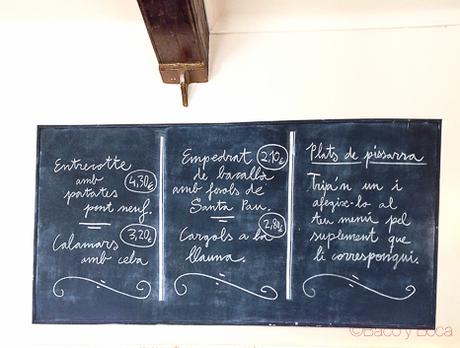 Entrecotte
amb
patates
pont neuf.
4,30€
Calamars
amb ceba
3,20€
Empedrat
de bacallà
amb fesols de
Santa Pau.
2,10€
Cargols a la
llauna.
2,80€
Plats de pissarra
Tria'n un i
afegix-lo al
teu menú pel
suplement que
li correspongui.
©Baco y Boca